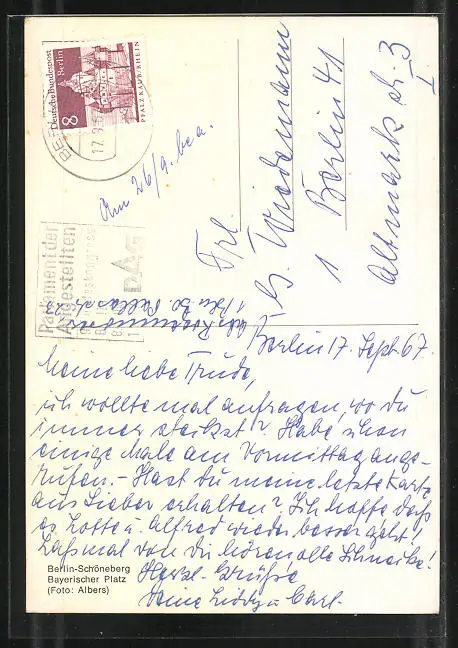 Deutsche Bundespost
Berlin
8
PFALZ KAUB/RHEIN
17.9.
Am 26/9. bea.
Parlament der
Angestellten
DAG
Frl.
G. Wiedemann
1 Berlin 41
Altmarkstr. 3
I
Berlin 17. Sept 67.
Meine liebe Trude,
ich wollte mal anfragen, wo du
immer steckst? Habe schon
einige Male am Vormittag ange-
rufen. - Hast du meine letzte Karte
aus Lieber erhalten? Ich hoffe daß
es Lotte u. Alfred wieder besser geht!
Laß mal von dir hören alle Schneike!
Herzl. Grüße
Deine Liddy u. Carl.
Berlin-Schöneberg
Bayerischer Platz
(Foto: Albers)